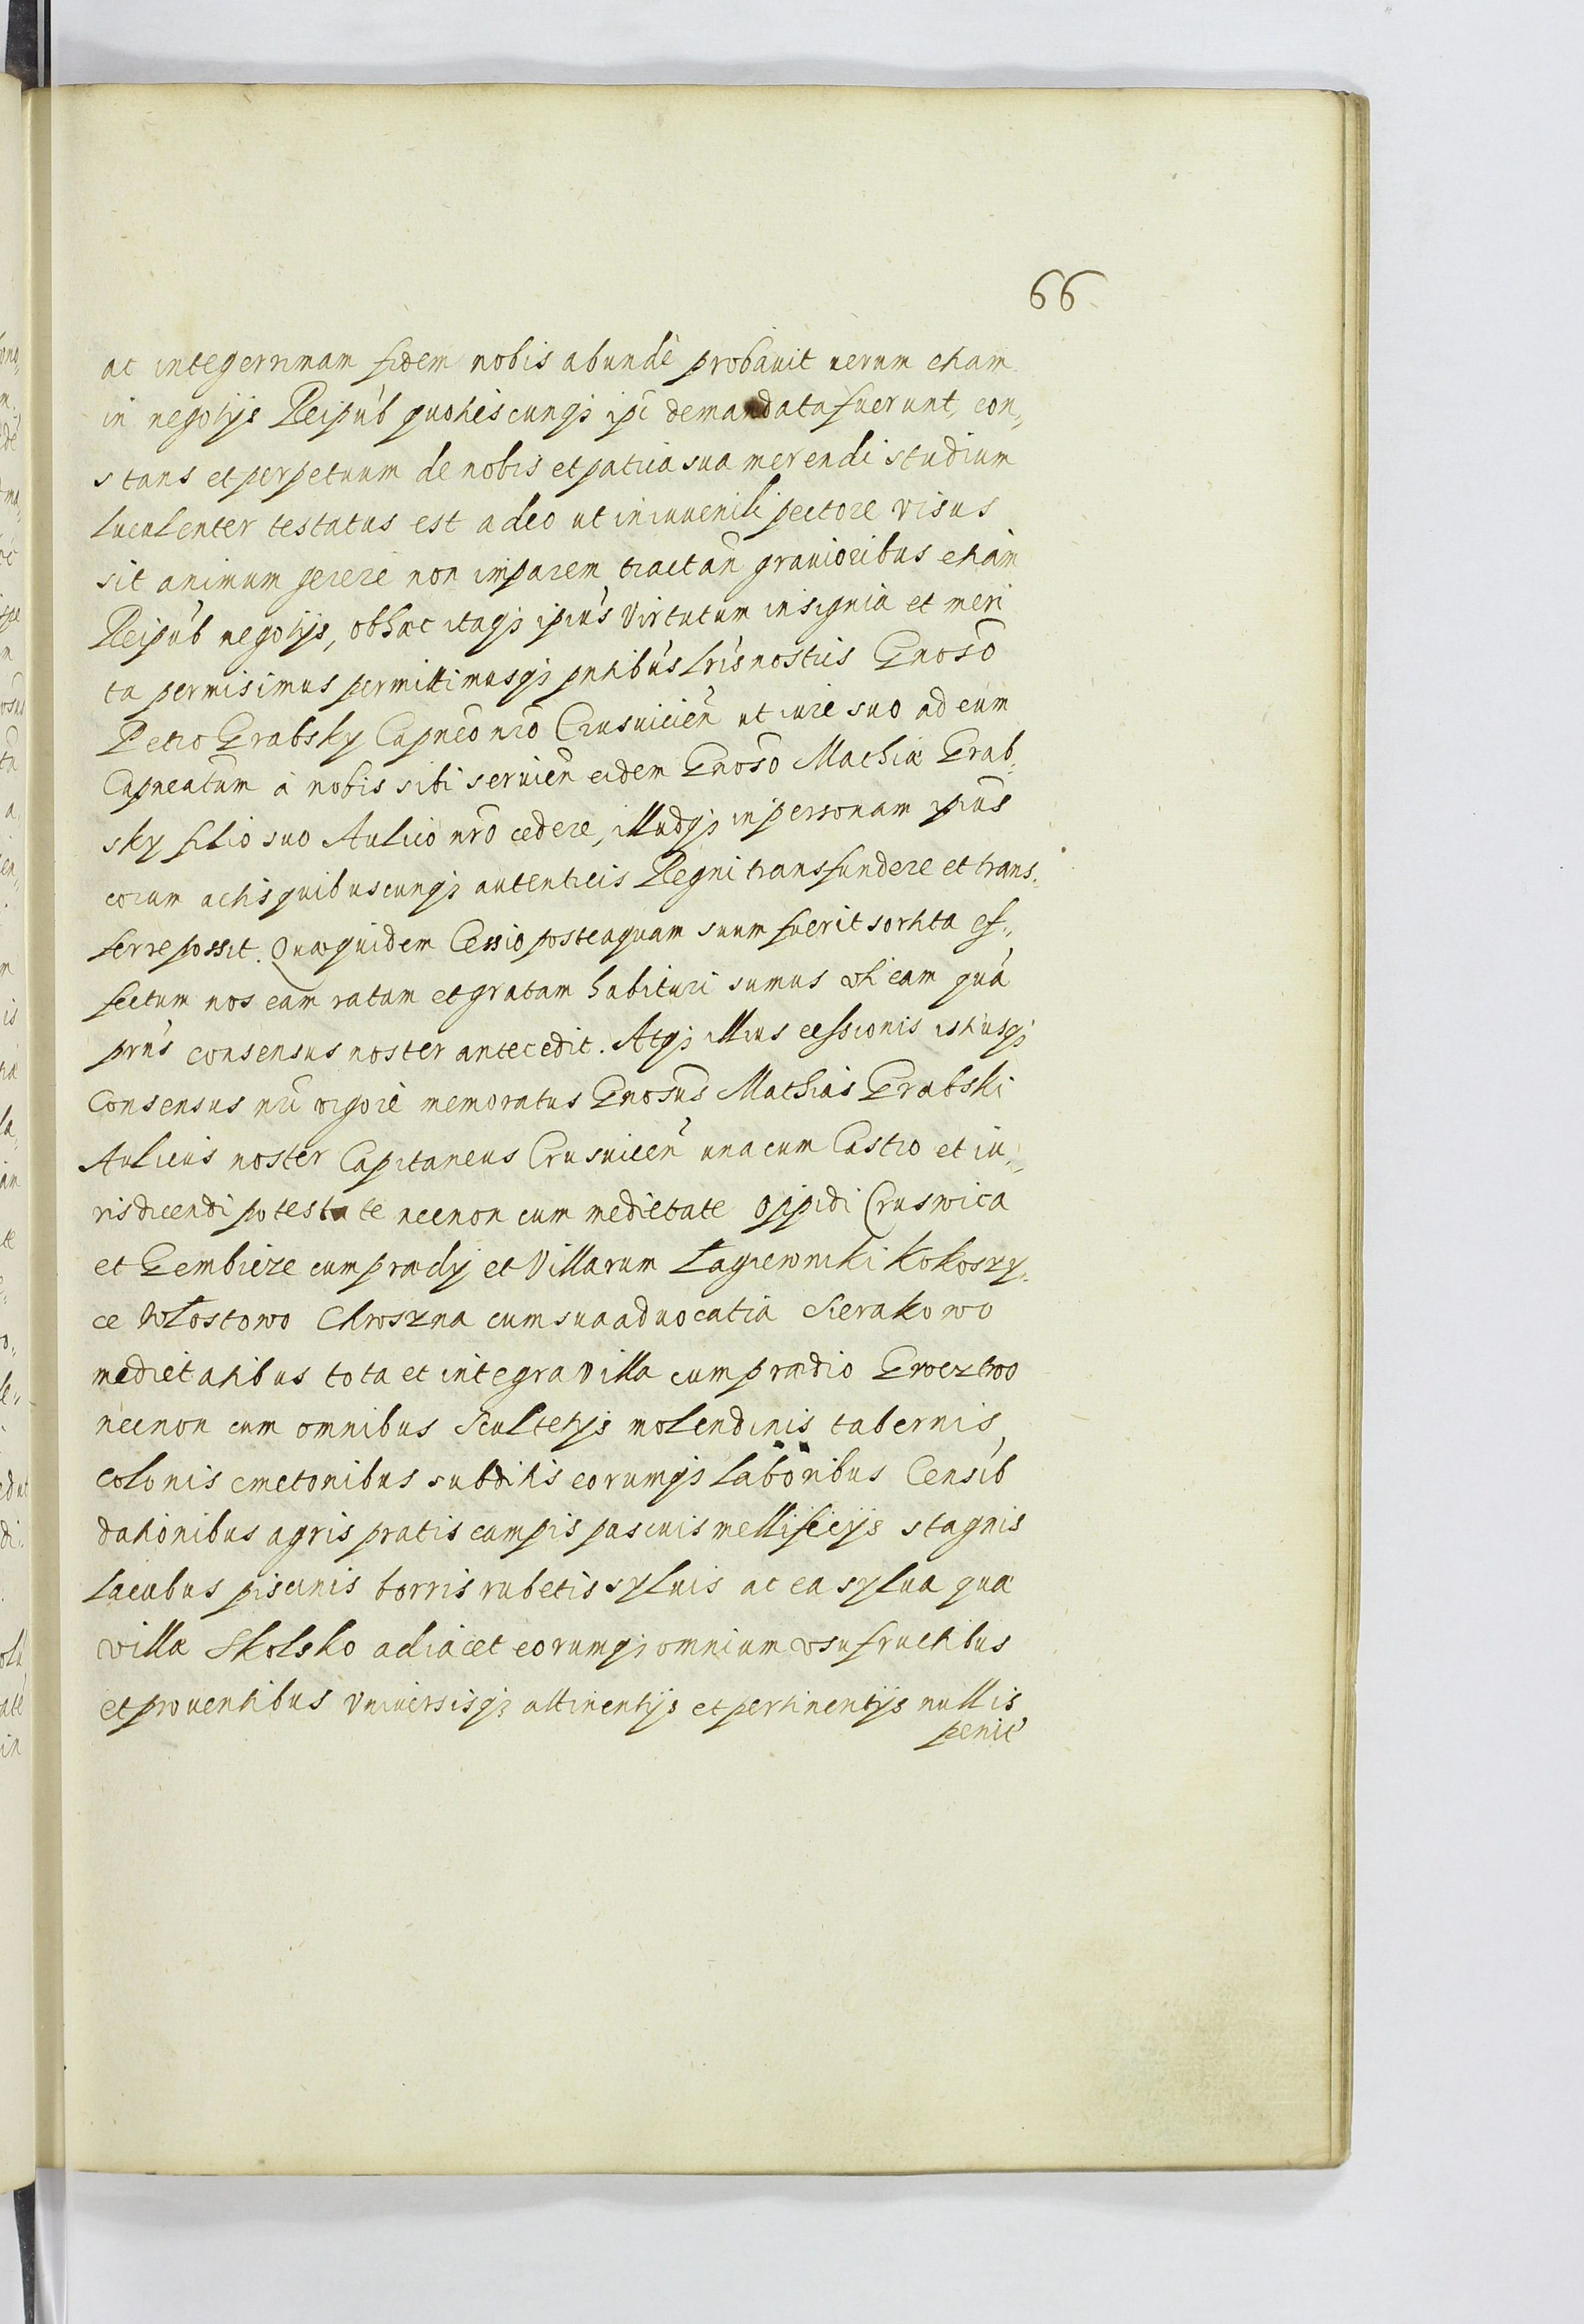 66
ac integerrimam fidem nobis abundè probavit uerum etiam
in negotijs Reipub quotiescunqȝ ipi demandata fuerunt, con„
stans et perpetuum de nobis et patria sua merendi studium
luculenter testatus est adeo ut in iuuenili pectore visus
sit animum gerere non imparem tractan̄ grauioribus etiam
Reipub negotijs, ob hac itaqȝ ipius Virtutum insignia et meri
ta permisimus permittimusqȝ pntibus lris nostris Gnoso
Petro Grabsky Capneo nro Crusuicien̄ ut iure suo ad eum
Capneatum à nobis sibi seruien̄ eidem Gnoso Mathiæ Grab„
sky filio suo Aulico nro cedere, illudqȝ in personam ipius
coram actis quibuscunqȝ autenticis Regni transfundere et trans„
ferre possit. Quæ quidem Cessio posteaquam suum fuerit sortita ef„
fectum nos eam ratam et gratam habituri sumus vti eam quâ
prns consensus noster antecedit. Atqȝ illius cessionis istiusqȝ
Consensus nri vigore memoratus Gnosus Mathias Grabski
Aulicus noster Capitaneus Crusuicen̄ una cum Castro et iu„
risdicendi potestate necnon cum medietate oppidi Cruswica
et Gembicze cum prædij et Villarum Łagiewniki Kokoszy„
ce Włostowo Chroszna cum sua aduocatia Sierakowo
medietatibus tota et integra villa cum prædio Grocztwo
necnon cum omnibus Scultetijs molendinis tabernis
colonis cmetonibus subditis eorumqȝ laboribus Censib
dationibus agris pratis campis pascuis mellificijs stagnis
lacubus piscinis borris rubetis syluis ac ea sylua quæ
villæ Skolsko adiacet eorumqȝ omnium vsufructibus
et prouentibus Vniuersisqȝ attinentijs et pertinentijs nullis
penit